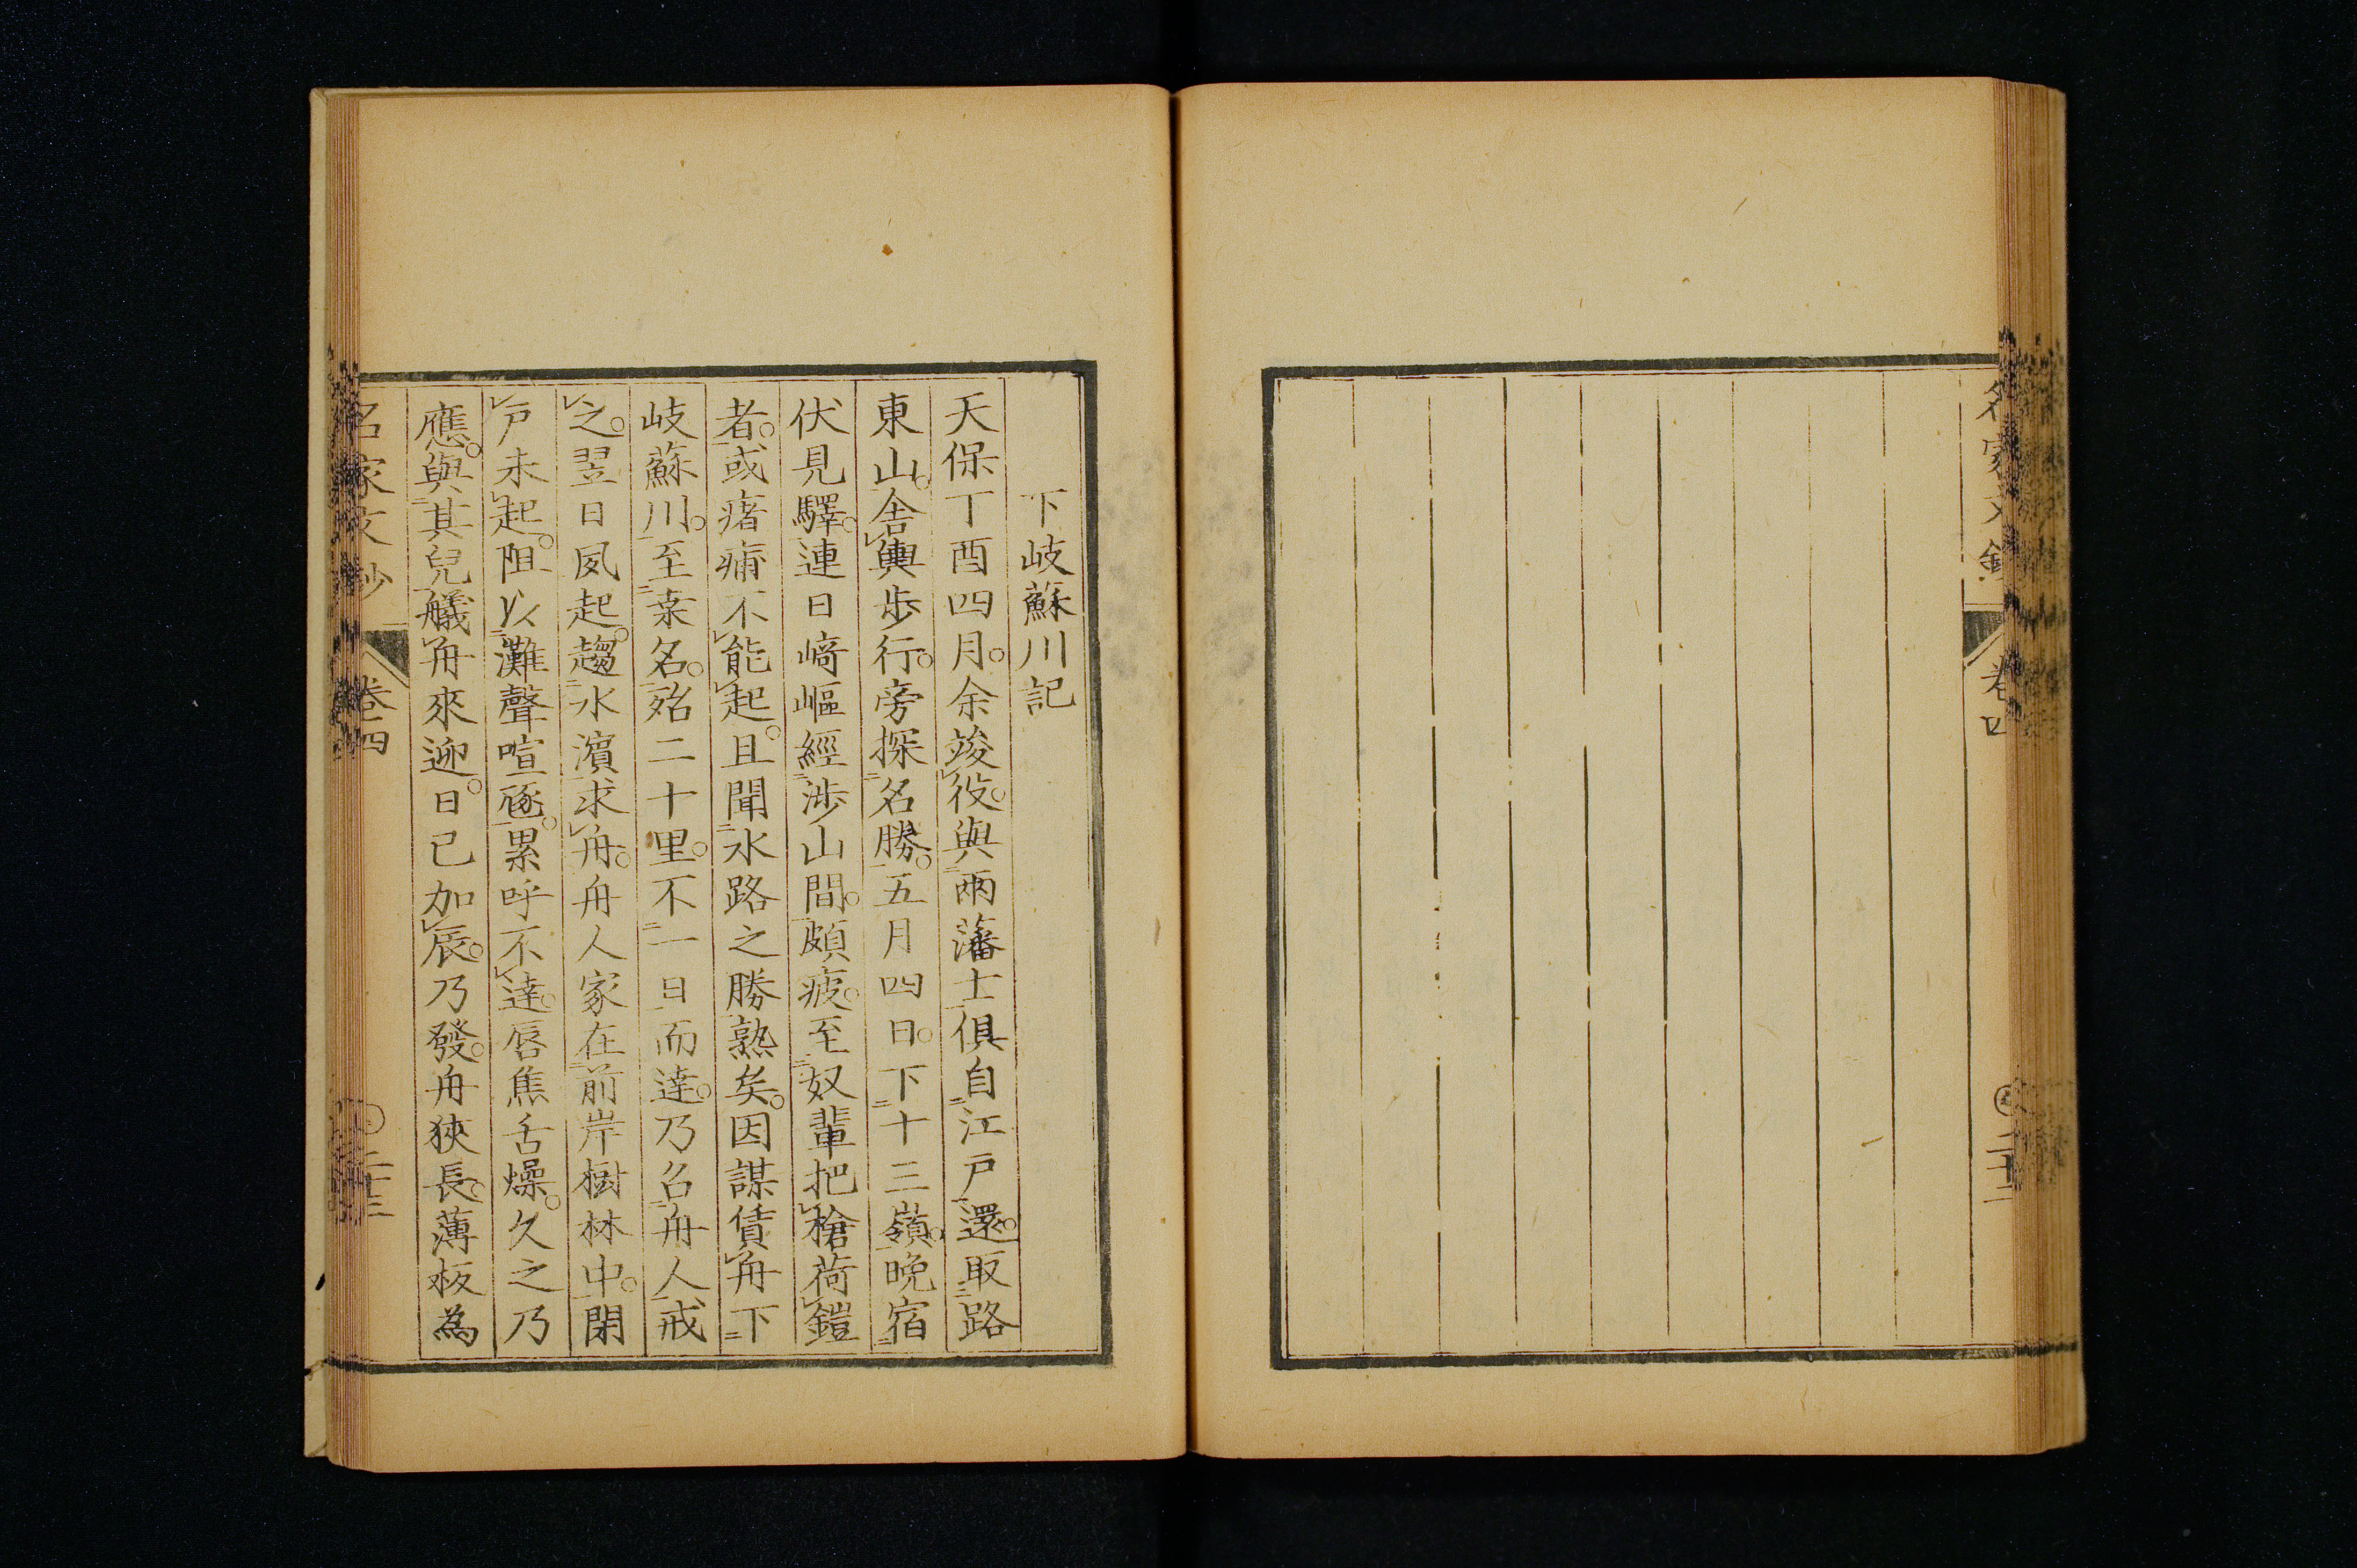 下岐蘇川記
天保丁酉四月。余竣役。與兩藩士俱自江戶還。取路
東山。舍輿步行。旁探名勝。五月四日。下十三嶺。晚宿
伏見驛。連日﨑嶇經涉山間。頗疲。至奴輩把槍荷鎧
者。或瘏痡不能起。且聞水路之勝熟矣。因謀賃舟下
岐蘇川。至桒名。殆二十里。不一日而達。乃召舟人戒
之。翌日夙起。趨水濱求舟。舟人家在前岸樹林中。閉
戶未起。阻以灘聲喧豗。累呼不達。唇焦舌燥。久之乃
應。與其兒艤舟來迎。日已加辰。乃發。舟狹長。薄板為
名家文鈔
卷四
二十三
卷四